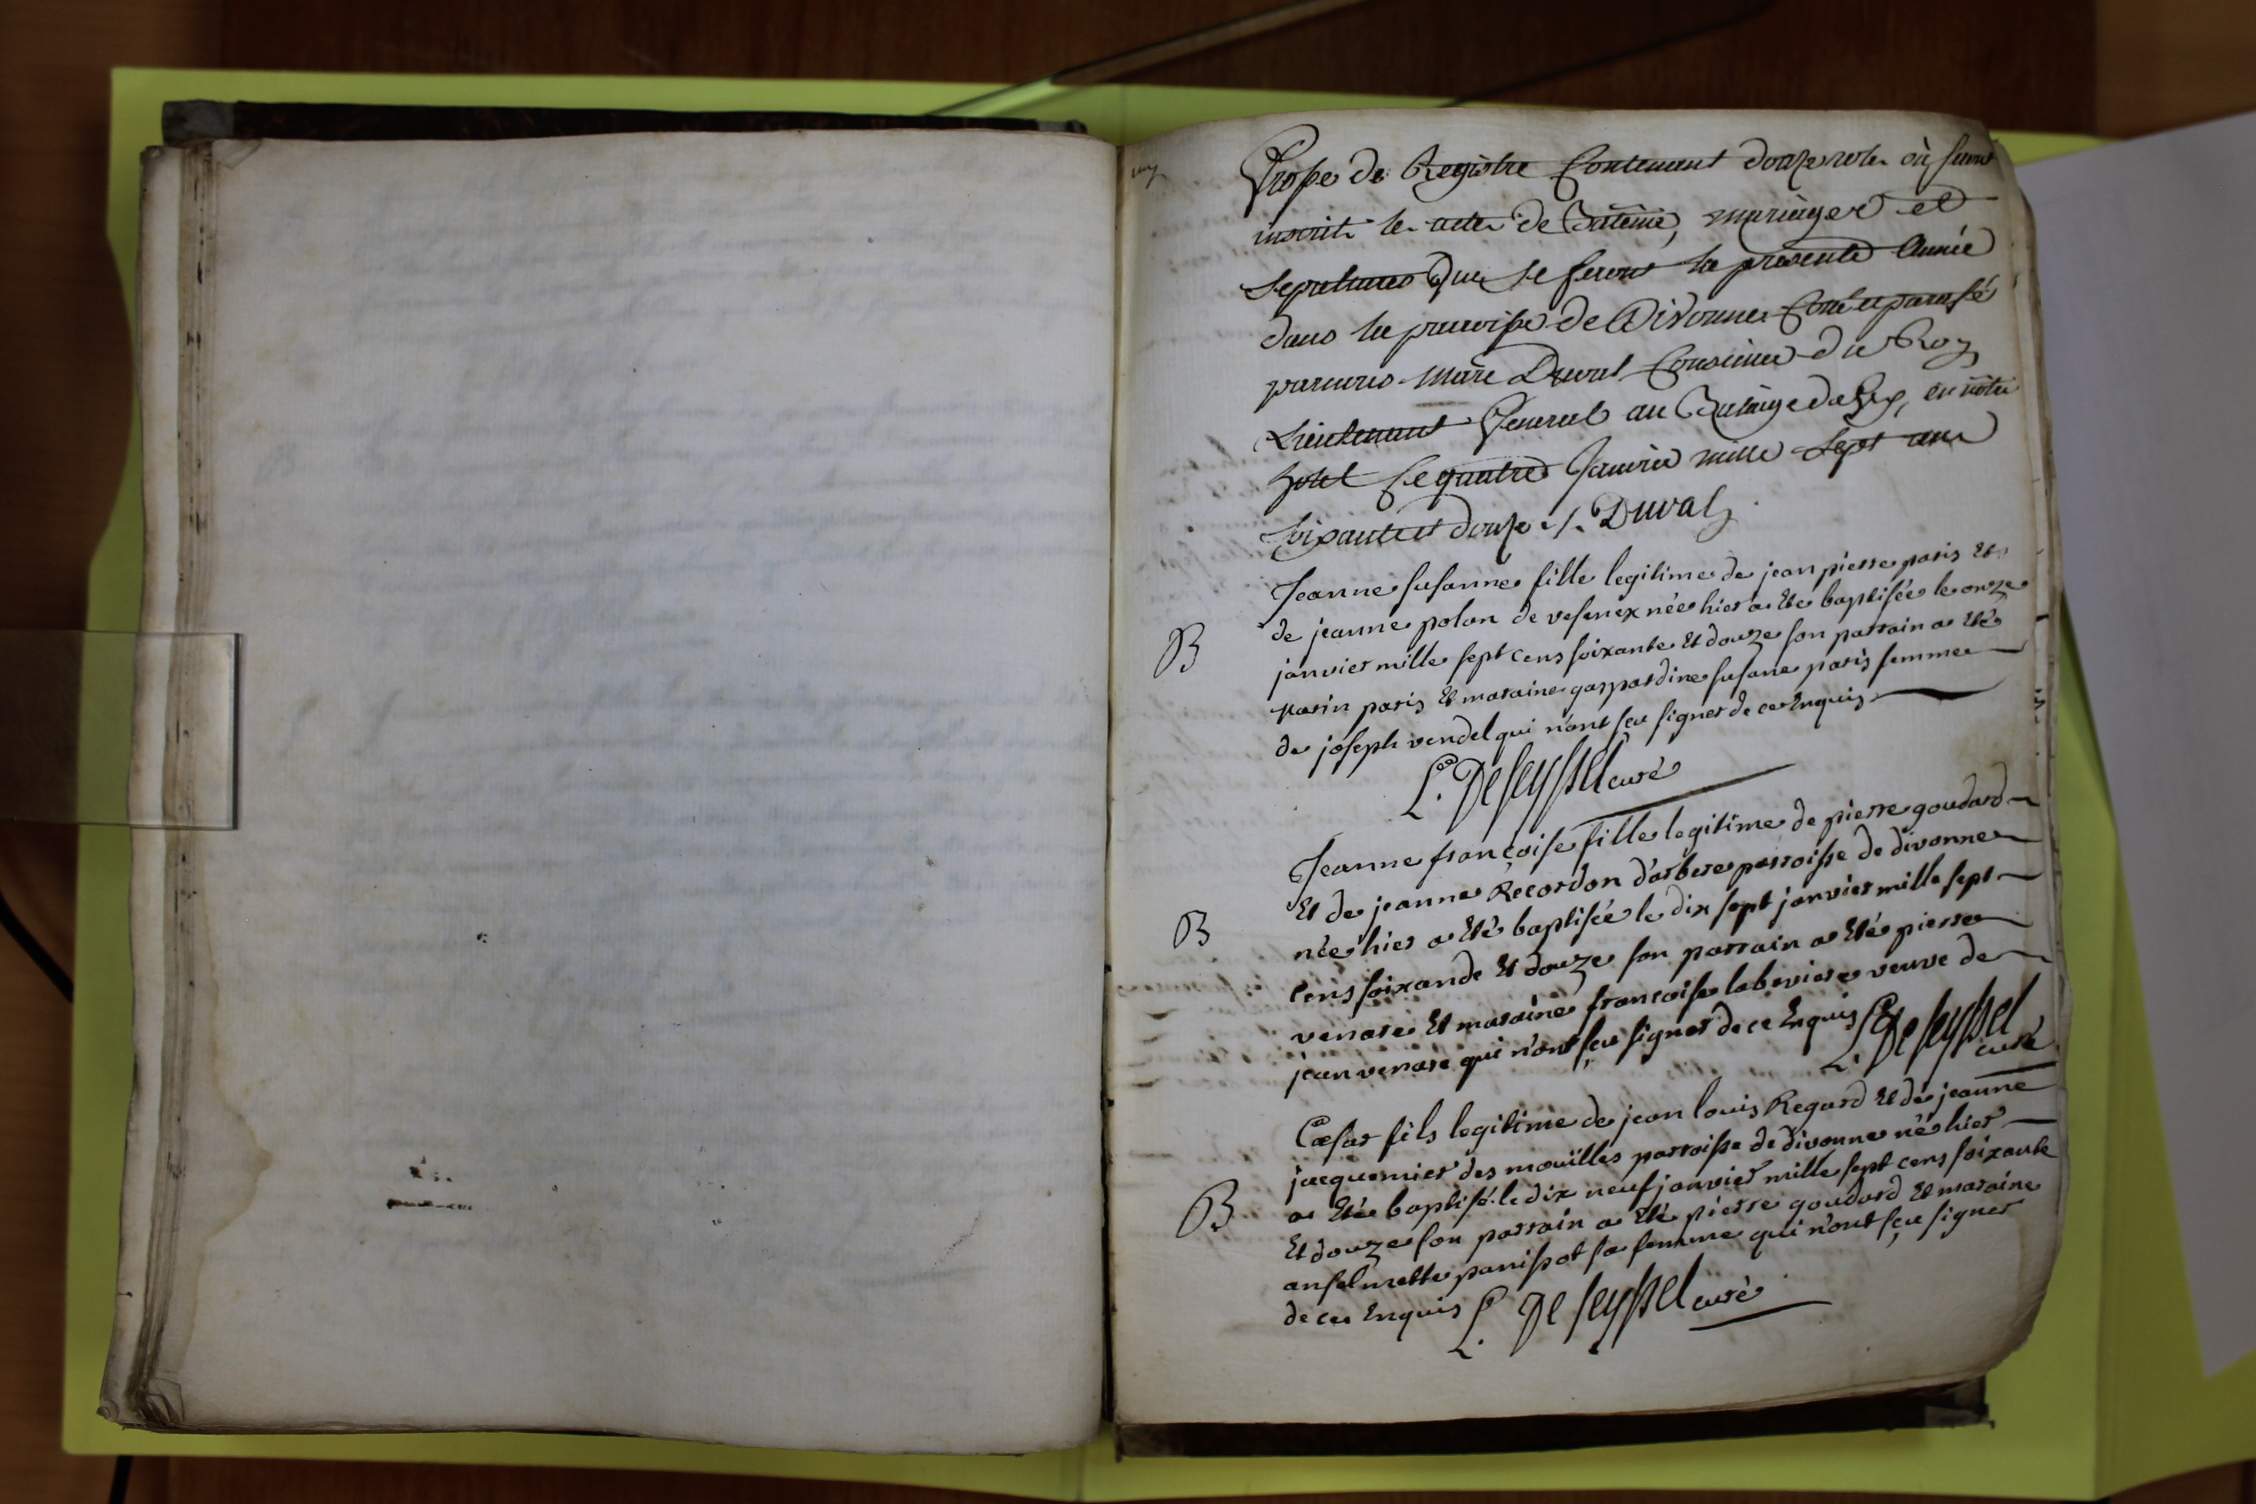 Grosse de Registre Contenant douze roles où seront
inscrit les actes de Batême, mariages et
Sepultures que se feront la presente Année
dans la parroisse de Divonne Cotté et paraffé
par nous Marc Duval Conseiller du Roy
Lieutenant General au Baliage de Gex, en nôtre
hotel Ce quatre Janvier mille Sept cens
soixante et douze Duval
Jeanne susanne fille legitime de jean pierre paris Et
de jeanne polan de vesenex née hier a Eté baptisée le onze
B
janvier mille sept cens soixante Et douze son parrain a Eté
marin paris Et maraine gaspardine susane paris femme
de joseph vendel qui n'ont sçu signer de ce Enquis
De seyssel curé
Jeanne françoise fille legitime de pierre goudard
Et de jeanne Recordon d'arbere parroisse de divonne
B
née hier a Eté baptisée le dix sept janvier mille sept
cens soixande Et douze son parrain a Eté pierre
venare Et maraine françoise laberiere veuve de
jean venare qui n'ont sçu signer de ce Enquis De seyssel
curé
Cæsar fils legitime de jean louis Regard Et de jeanne
jacquemier des mouïlles parroisse de divonne né hier
B
a Eté baptisé le dix neuf janvier mille sept cens soixante
Et douze son parrain a Eté pierre goudard Et maraine
anselmette panissot sa femme qui n'ont sçu signer
de ce Enquis De seyssel curé